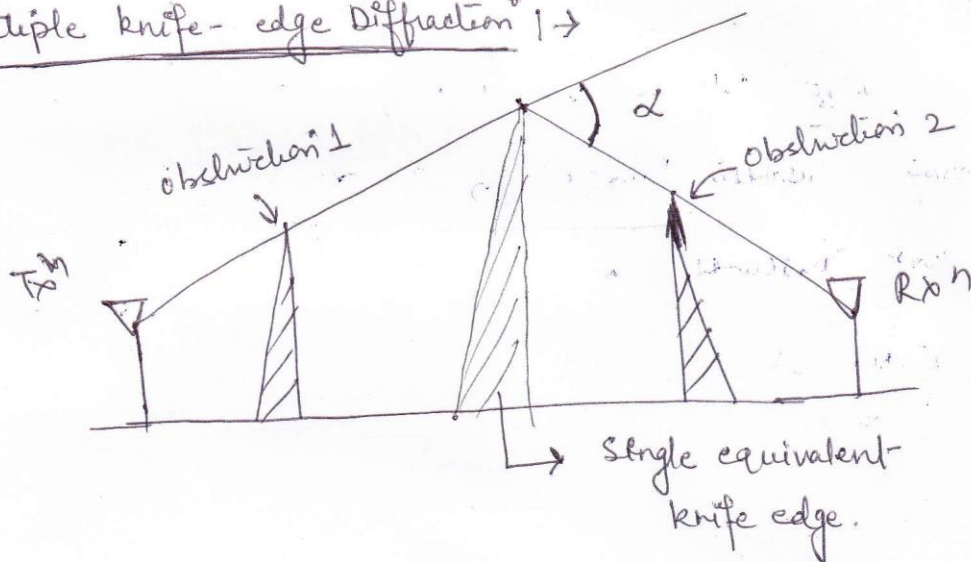 tiple knife-edge Diffraction :→
α
obstruction 1
obstruction 2
Txᵐ
Rxⁿ
Single equivalent
knife edge.